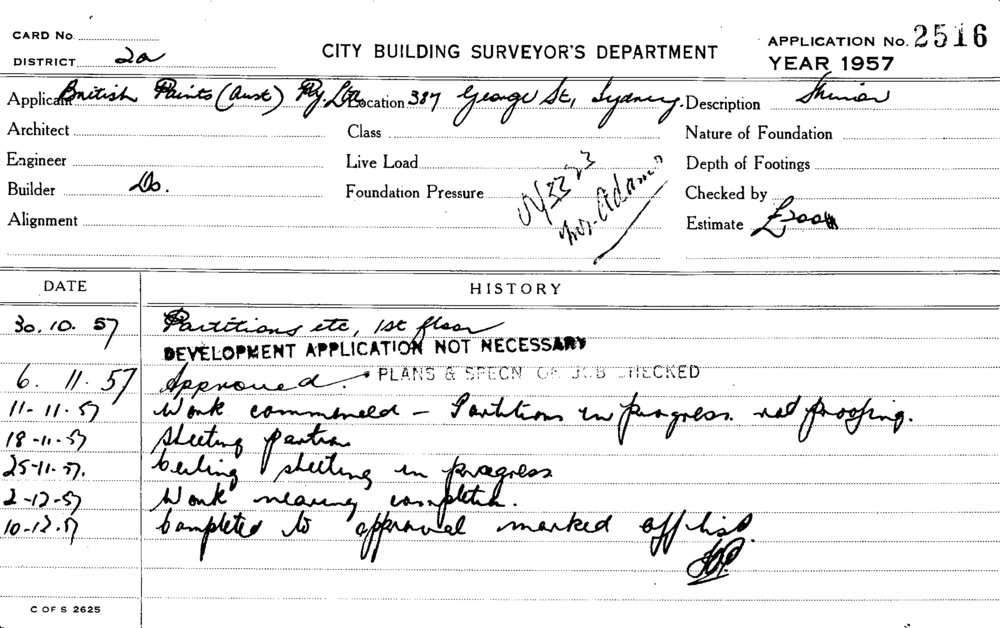 CARD No.
DISTRICT 2a
CITY BUILDING SURVEYOR'S DEPARTMENT
APPLICATION No. 2516
YEAR 1957
Applicant British Paints (Aust) Pty. Ltd. Location 387 George St, Sydney. Description
Architect Class Nature of Foundation
Engineer Live Load Depth of Footings
Builder Do. Foundation Pressure Checked by
Mr. Adams
Alignment Estimate £2000
DATE HISTORY
30.10.57 Partitions etc, 1st floor
DEVELOPMENT APPLICATION NOT NECESSARY
6.11.57 Approved. PLANS & SPECN ON JOB CHECKED
11-11-57 Work commenced - Partitions in progress. rat proofing.
18-11-57 Sheeting
25-11-57. Ceiling sheeting in progress
2-12-57 Work nearing completion.
10-12-57 Completed to approval marked off list.
C OF S 2625